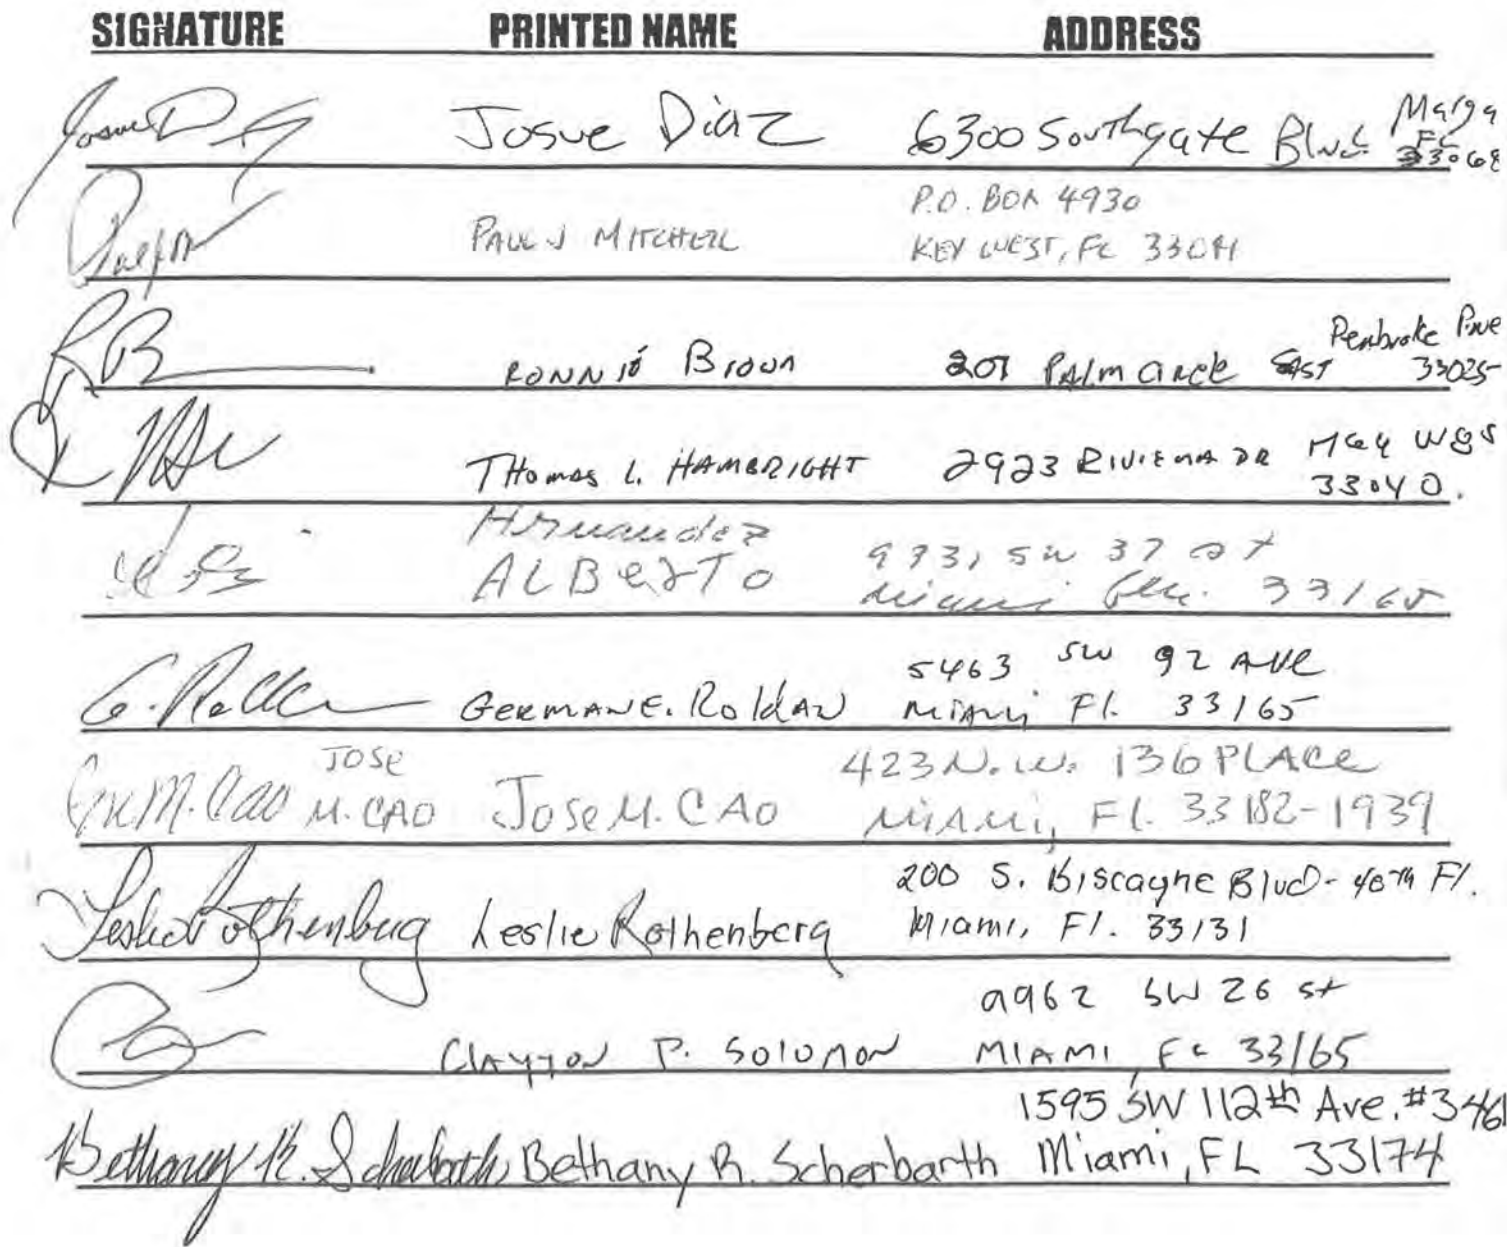 SIGNATURE PRINTED NAME ADDRESS
Josue D Josue Diaz 6300 Southgate Blvd. Marga
FL
33068
PAUL J MITCHELL P.O. BOX 4930
KEY WEST, FL 33041
RB RONNIE Brown 201 PAlm CIRCLE EAST Penbroke Pine
33025
THomas L. HAMBRIGHT 2923 RIVIERA DR
33040.
Hernandez
ALBERTO 9931 SW 37 st
Miami Fla. 33165
G. GERMAN E. RoldAN 5463 SW 92 AVE
MiAMi Fl. 33165
JOSE
M. CAO JOSE M. CAO 423 N.W. 136 PLACE
MiAMi, Fl. 33182-1939
Leslie Rothenberg Leslie Rothenberg 200 S. Biscayne Blvd - 40TH Fl.
Miami, Fl. 33131
CLAYTON P. SOLOMON 9962 SW 26 st
MIAMI, FL 33165
Bethany R. Scherbarth Bethany R. Scherbarth 1595 SW 112th Ave. #346
Miami, FL 33174